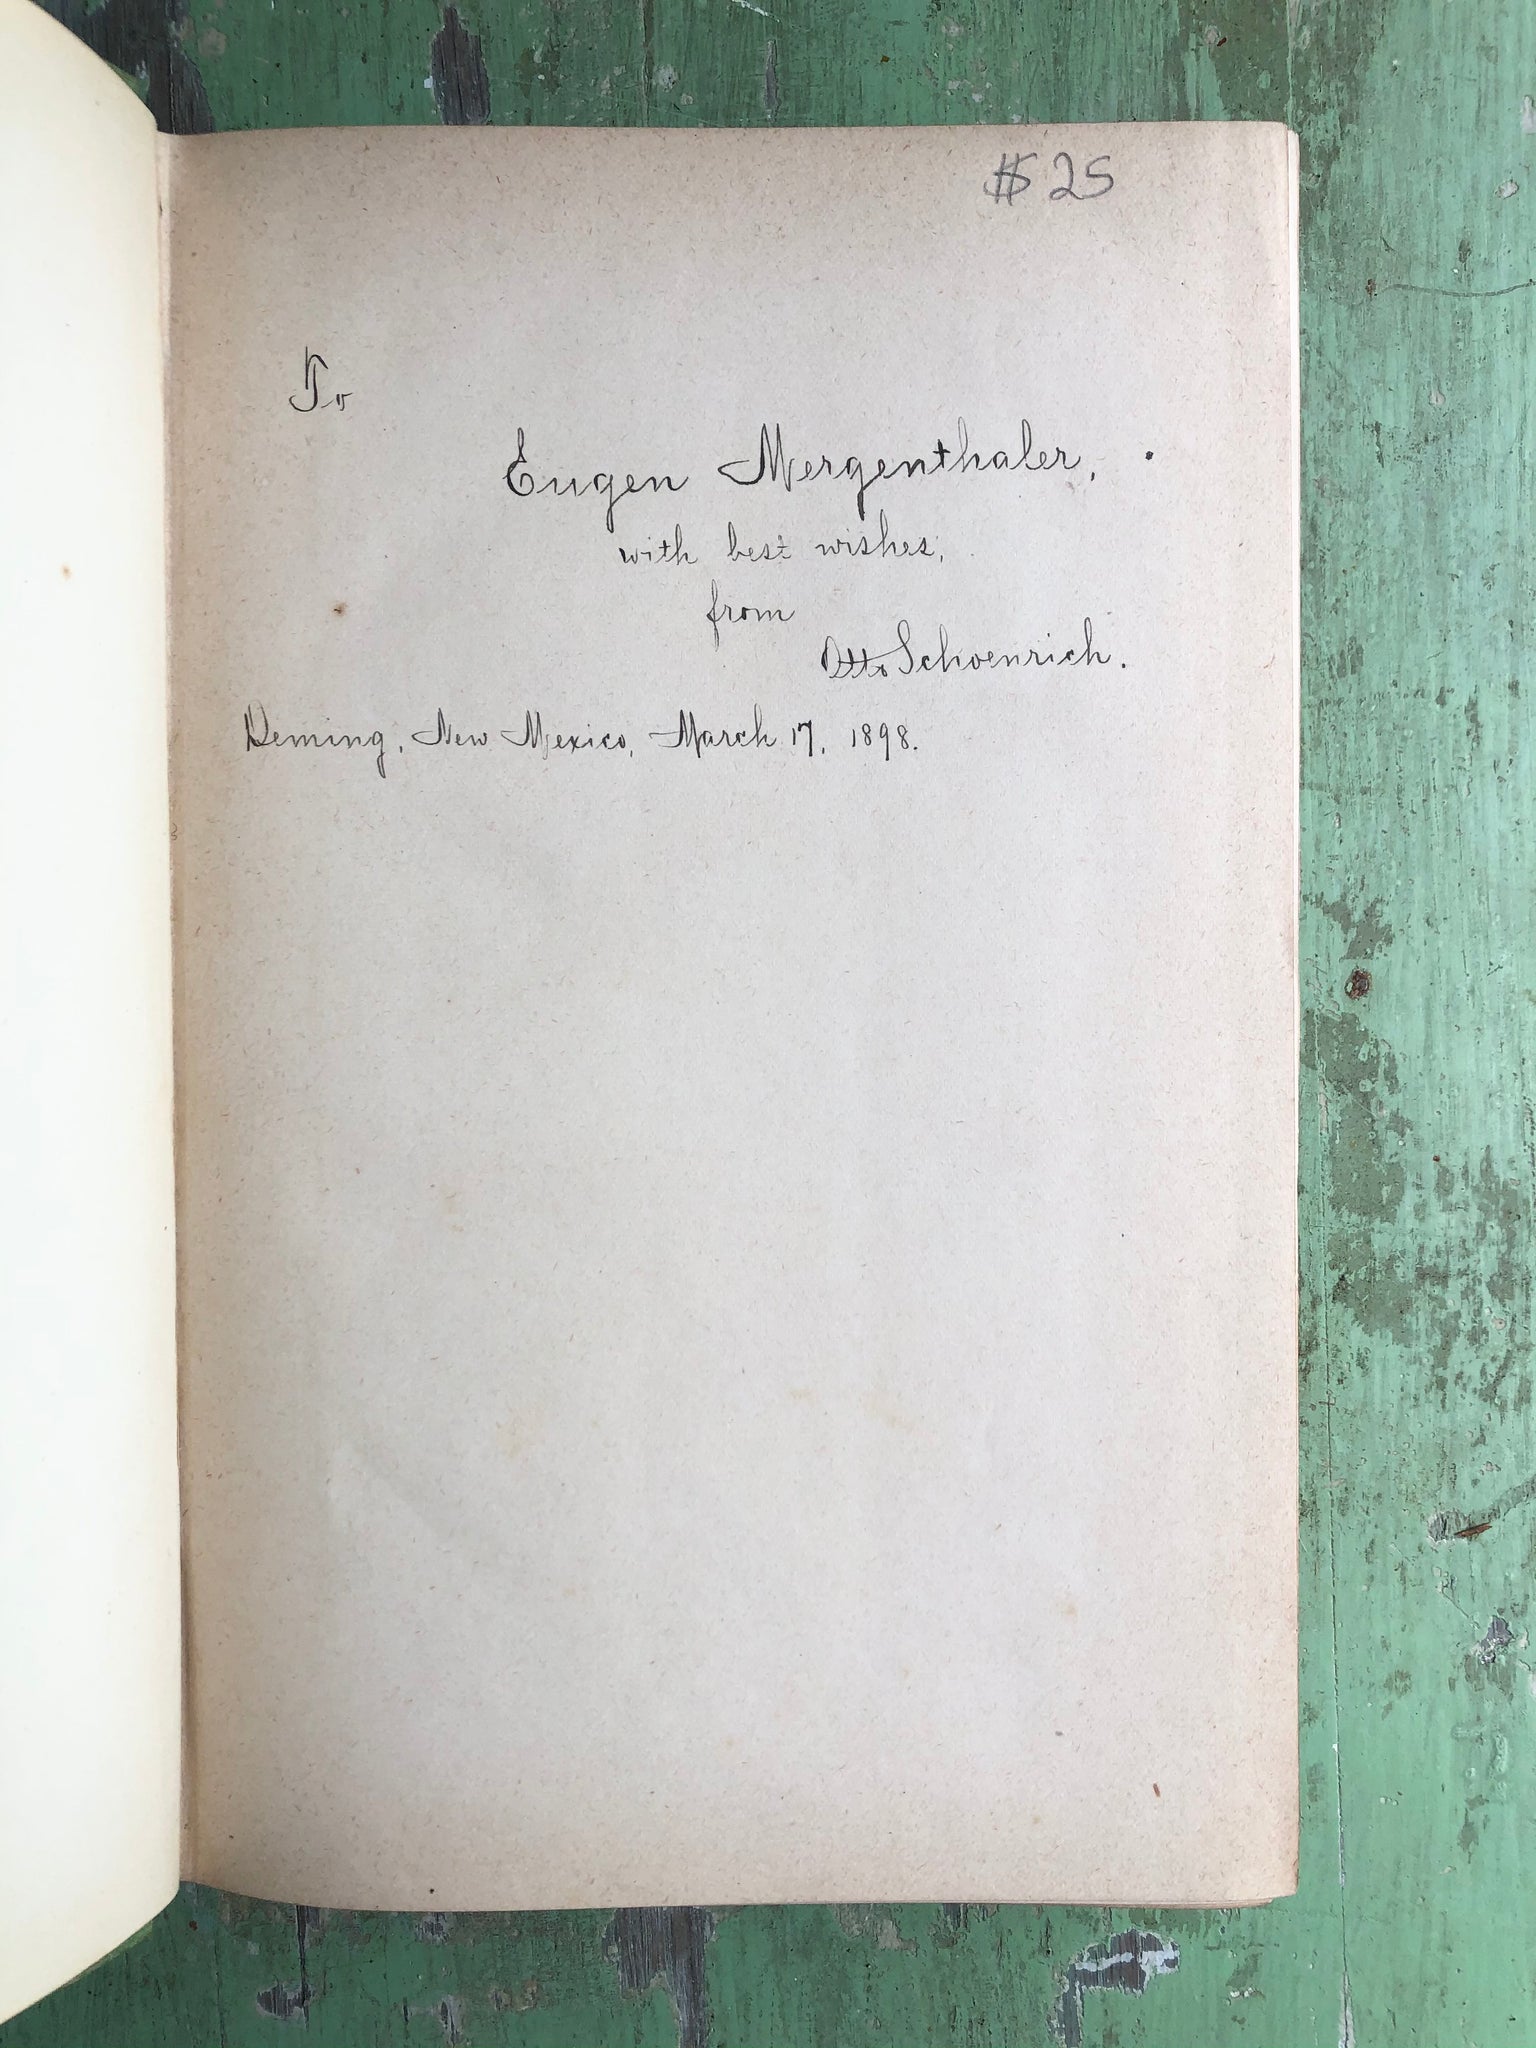 $25
To
Eugen Mergenthaler,
with best wishes,
from
Otto Schoenrich.
Deming, New Mexico, March 17, 1898.